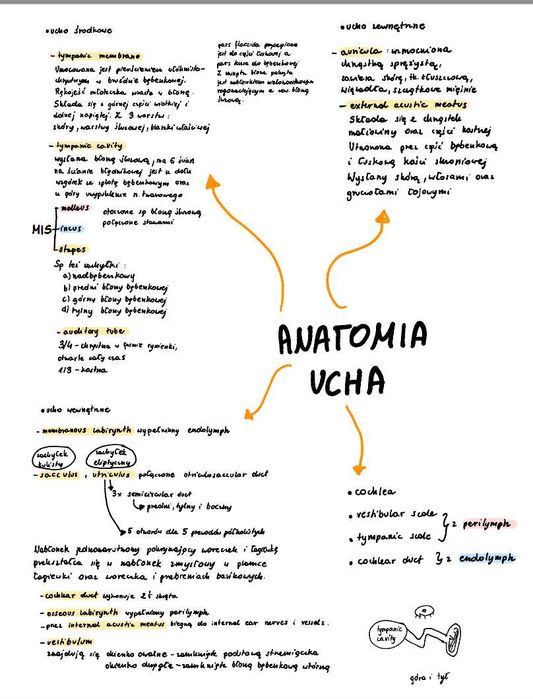 • ucho środkowe
- tympanic membrane
Umocowana jest pierścieniem włóknisto-
chrzęstnym w bruździe bębenkowej.
Rękojeść młoteczka wrasta w błonę.
Składa się z górnej części wiotkiej i
dolnej napiętej. Z 3 warstw:
skóry, warstwy śluzowej, blaszki właściwej
pars flaccida przyczepiona
jest do części łuskowej a
pars tensa do bębenkowej
Z wnętrz błona pokryta
jest nabłonkiem wielowarstwowym
rogowaciejącym a wew. błoną
śluzową.
- tympanic cavity
wysłana błoną śluzową, ma 6 ścian
na ścianie błędnikowej jest u dołu
wzgórek ze splotem bębenkowym oraz
u góry uwypuklenie n. twarzowego
MIS
malleus
incus
stapes
otoczone są błoną śluzową
połączone stawami
Są też zachyłki:
a) nadbębenkowy
b) przedni błony bębenkowej
c) górny błony bębenkowej
d) tylny błony bębenkowej
- auditory tube
3/4 - chrzęstna w formie rynienki,
otwarte cały czas
1/3 - kostna
• ucho zewnętrzne
- auricula: wzmocniona
chrząstką sprężystą,
zawiera skórę, tk. tłuszczową,
więzadła, szczątkowe mięśnie
- external acustic meatus
Składa się z chrząstek
małżowiny oraz części kostnej
Utworzona przez część bębenkową
i łuskową kości skroniowej
Wysłany skórą, włosami oraz
gruczołami łojowymi
ANATOMIA
UCHA
• ucho wewnętrzne
- membranous labirynth wypełniony endolymph
zachyłek
kulisty
zachyłek
eliptyczny
- sacculus, utriculus połączone utriculosaccular duct
3x semicircular duct
przedni, tylny i boczny
5 otworów dla 5 przewodów półkolistych
Nabłonek jednowarstwowy pokrywający woreczek i łagiewkę
przekształca się w nabłonek zmysłowy w plamce
łagiewki oraz woreczka i grzebieniach bańkowych.
- cochlear duct wykonuje 2½ skręta
- osseous labirynth wypełniony perilymph
- przez internal acustic meatus biegną do internal ear nerves i vessels.
- vestibulum
znajdują się okienko owalne - zamknięte podstawą strzemiączka
okienko okrągłe - zamknięte błoną bębenkową wtórną
• cochlea
• vestibular scale
• tympanic scale
z perilymph
• cochlear duct } z endolymph
tympanic
cavity
góra i tył